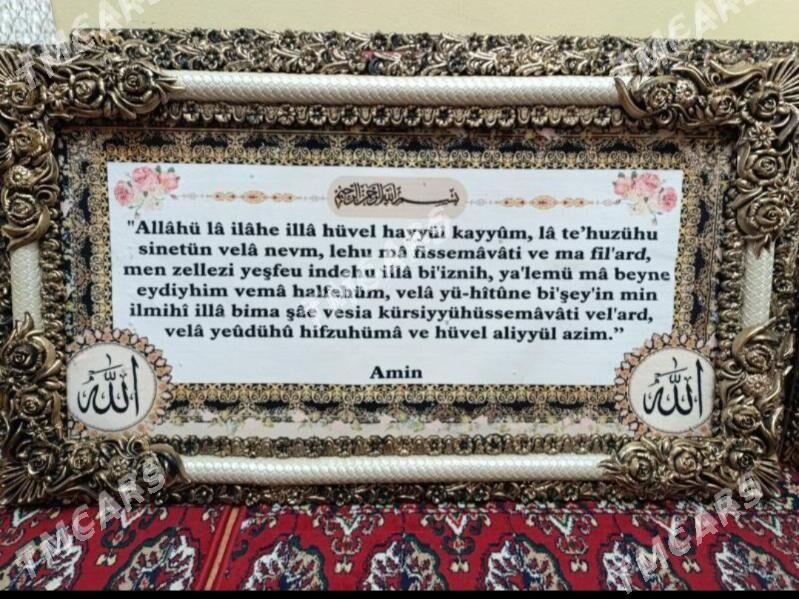 بسم الله الرحمن الرحيم
"Allâhü lâ ilâhe illâ hüvel hayyül kayyûm, lâ te'huzühu
sinetün velâ nevm, lehu mâ fissemâvâti ve ma fil'ard,
men zellezi yeşfeu indehu illâ bi'iznih, ya'lemü mâ beyne
eydiyhim vemâ halfehüm, velâ yü-hîtûne bi'şey'in min
ilmihî illâ bima şâe vesia kürsiyyühüssemâvâti vel'ard,
velâ yeûdühû hifzuhümâ ve hüvel aliyyül azim.”
Amin
الله
الله
TMCARS
TMCARS
TMCARS
TMCARS
TMCARS
TMCARS
TMCARS